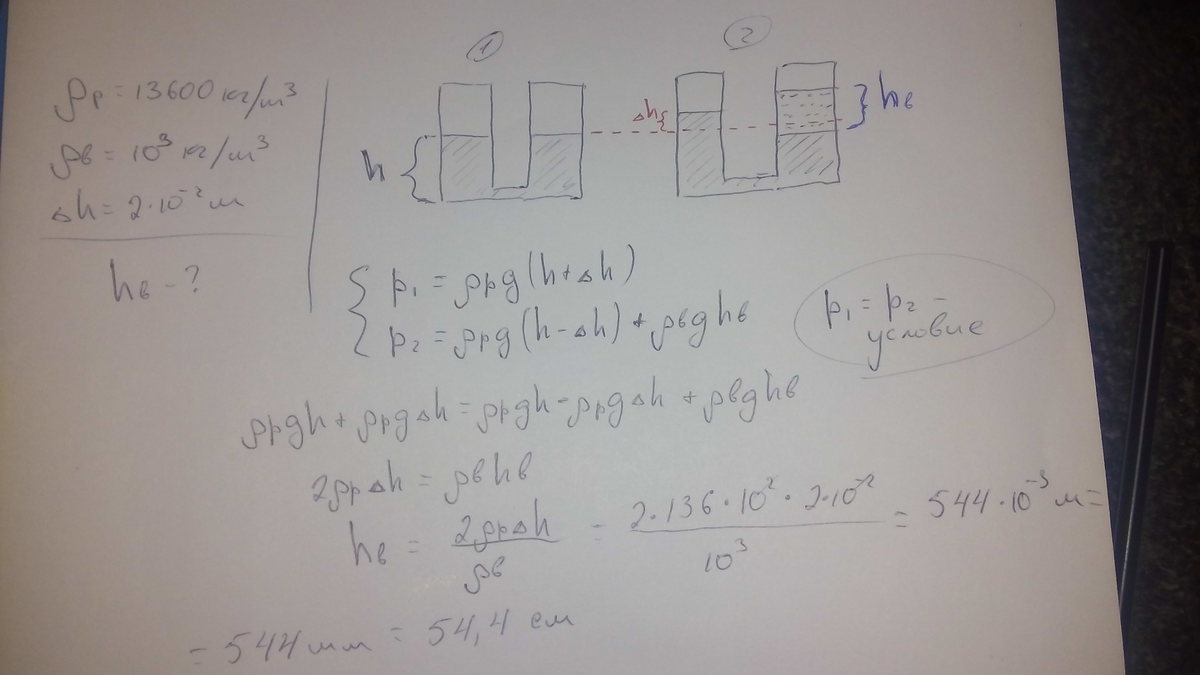 ρр = 13600 кг/м³
ρв = 10³ кг/м³
Δh = 2·10⁻² м
hв - ?
1
2
h
Δh
hв
p₁ = ρрg(h+Δh)
p₂ = ρрg(h-Δh) + ρвghв
p₁ = p₂ -
условие
ρрgh + ρрgΔh = ρрgh - ρрgΔh + ρвghв
2ρрΔh = ρвhв
hв = 2ρрΔh/ρв = 2·136·10²·2·10⁻²/10³ = 544·10⁻³ м =
= 544 мм = 54,4 см